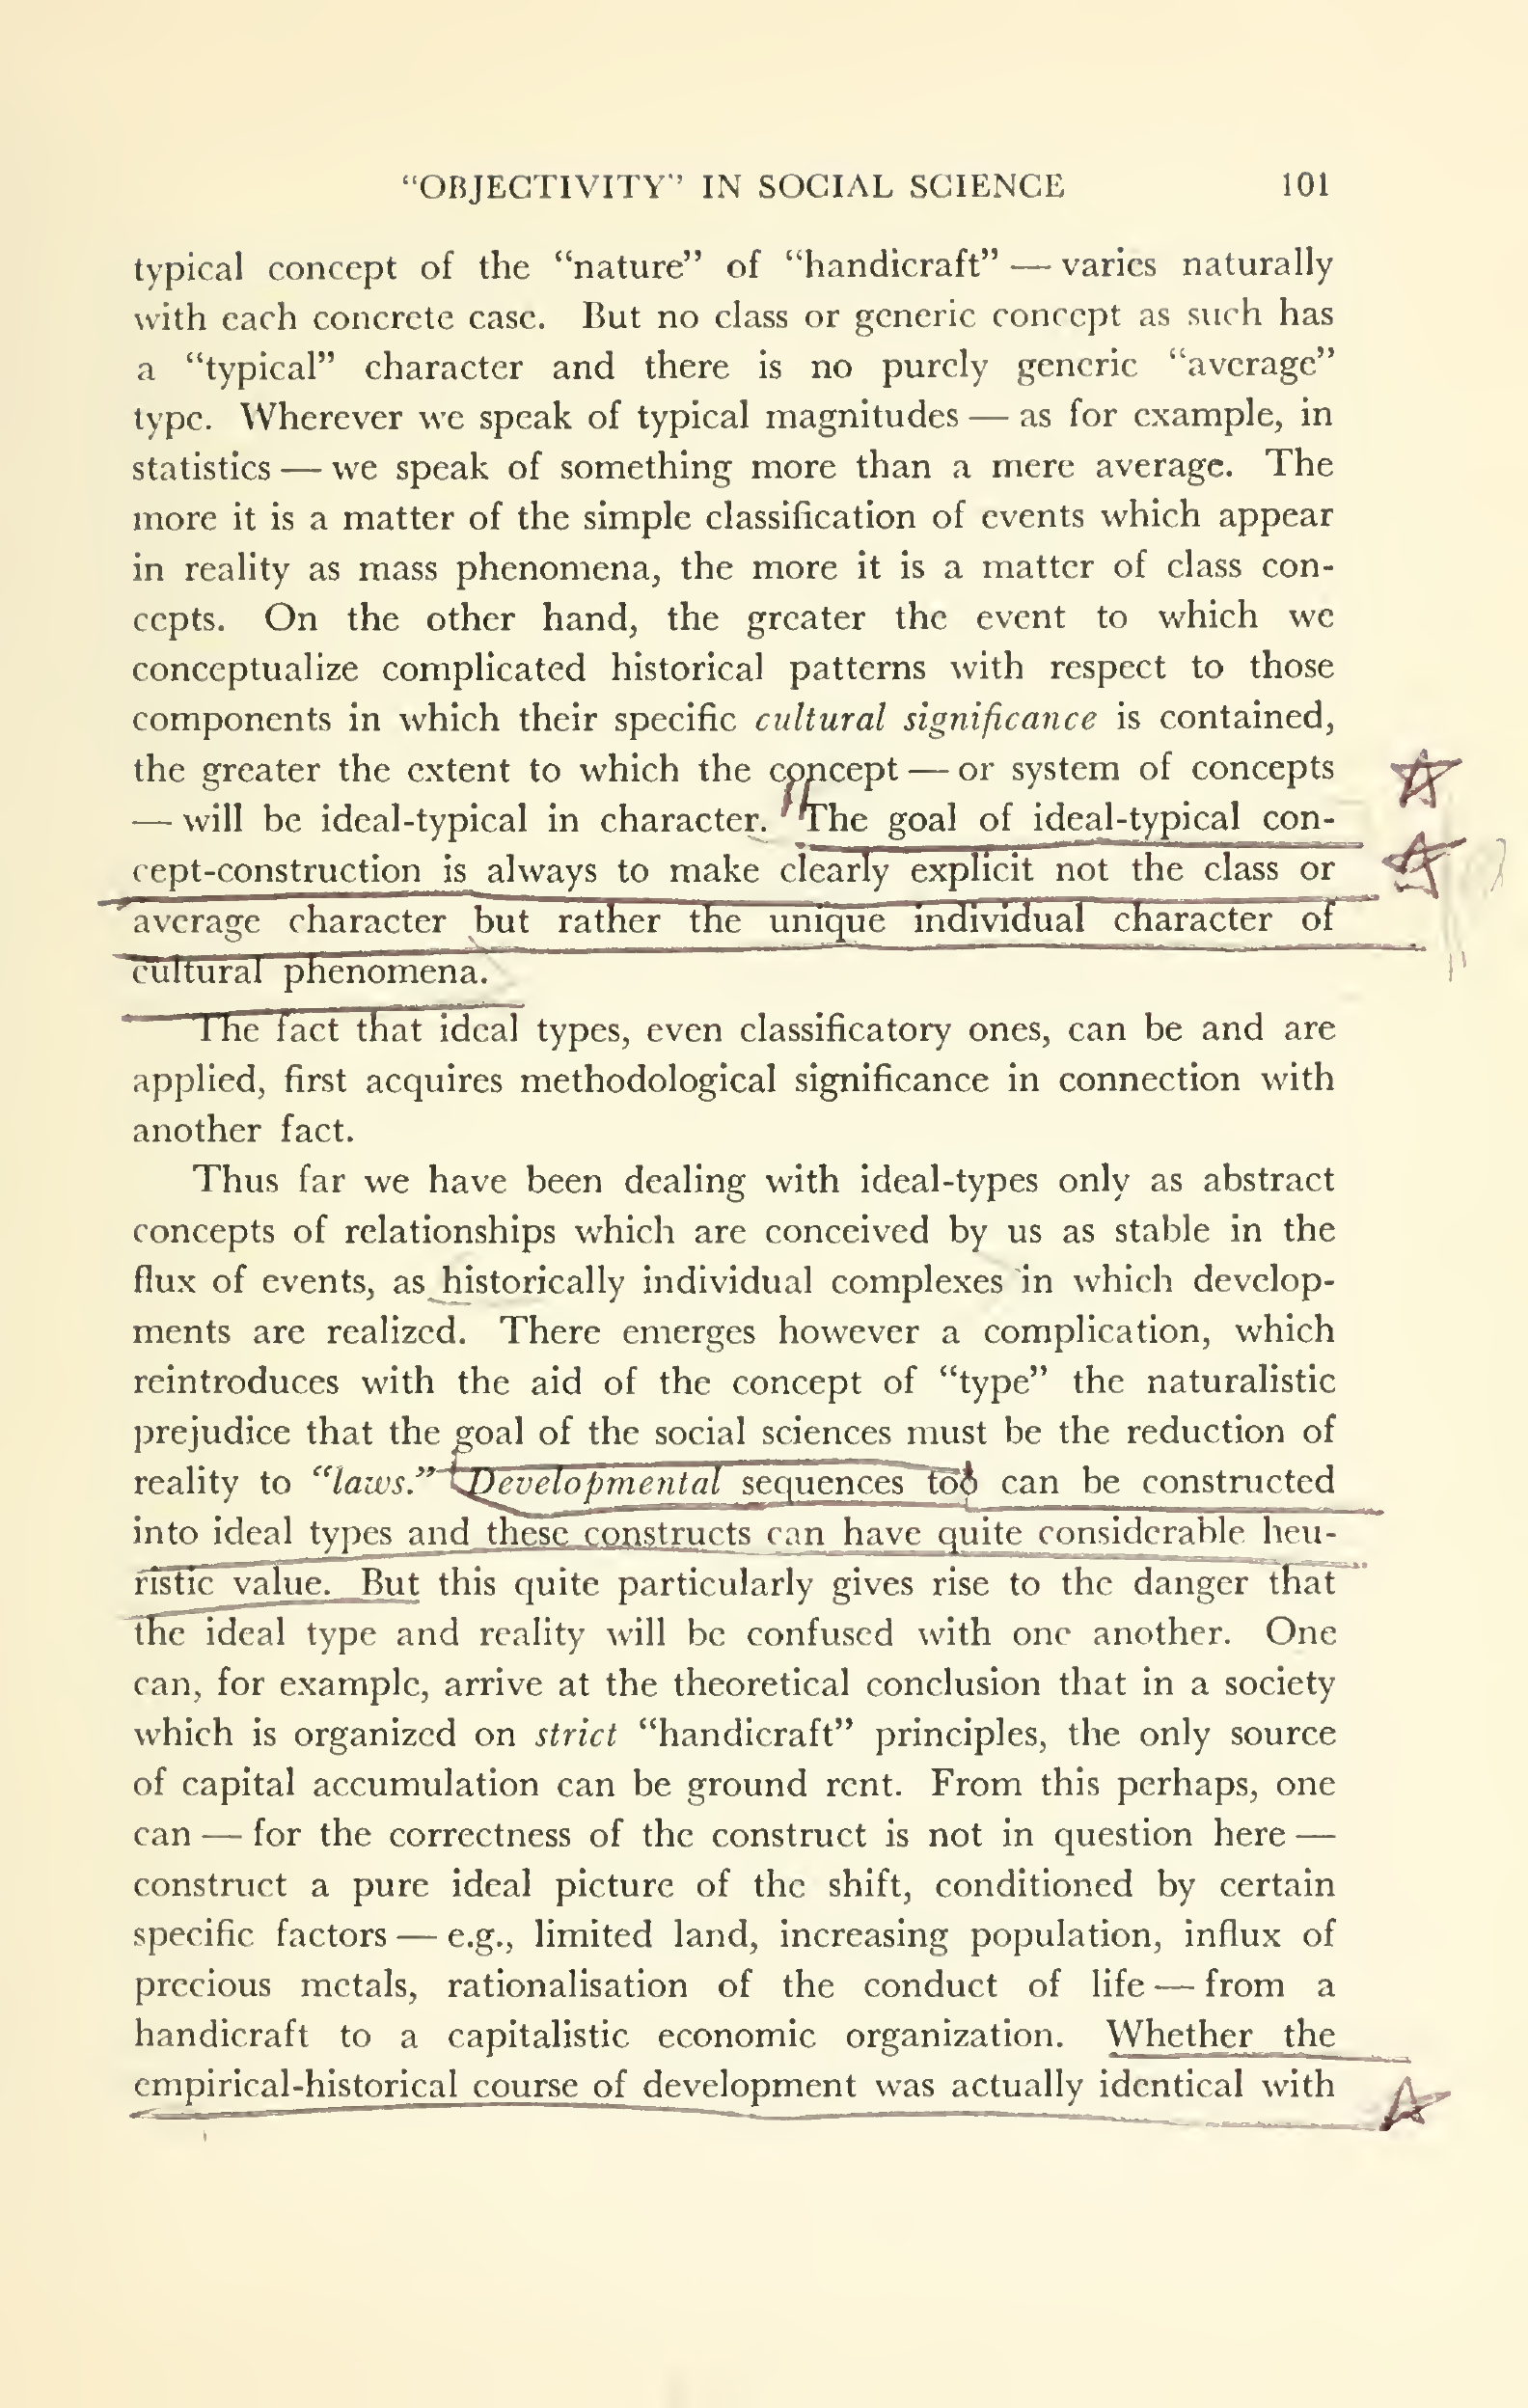 "OBJECTIVITY" IN SOCIAL SCIENCE 101
typical concept of the "nature" of "handicraft" — varies naturally
with each concrete case. But no class or generic concept as such has
a "typical" character and there is no purely generic "average"
type. Wherever we speak of typical magnitudes — as for example, in
statistics — we speak of something more than a mere average. The
more it is a matter of the simple classification of events which appear
in reality as mass phenomena, the more it is a matter of class con-
cepts. On the other hand, the greater the event to which we
conceptualize complicated historical patterns with respect to those
components in which their specific cultural significance is contained,
the greater the extent to which the concept — or system of concepts
— will be ideal-typical in character. The goal of ideal-typical con-
cept-construction is always to make clearly explicit not the class or
average character but rather the unique individual character of
cultural phenomena.
The fact that ideal types, even classificatory ones, can be and are
applied, first acquires methodological significance in connection with
another fact.
Thus far we have been dealing with ideal-types only as abstract
concepts of relationships which are conceived by us as stable in the
flux of events, as historically individual complexes in which develop-
ments are realized. There emerges however a complication, which
reintroduces with the aid of the concept of "type" the naturalistic
prejudice that the goal of the social sciences must be the reduction of
reality to "laws." Developmental sequences too can be constructed
into ideal types and these constructs can have quite considerable heu-
ristic value. But this quite particularly gives rise to the danger that
the ideal type and reality will be confused with one another. One
can, for example, arrive at the theoretical conclusion that in a society
which is organized on strict "handicraft" principles, the only source
of capital accumulation can be ground rent. From this perhaps, one
can — for the correctness of the construct is not in question here —
construct a pure ideal picture of the shift, conditioned by certain
specific factors — e.g., limited land, increasing population, influx of
precious metals, rationalisation of the conduct of life — from a
handicraft to a capitalistic economic organization. Whether the
empirical-historical course of development was actually identical with